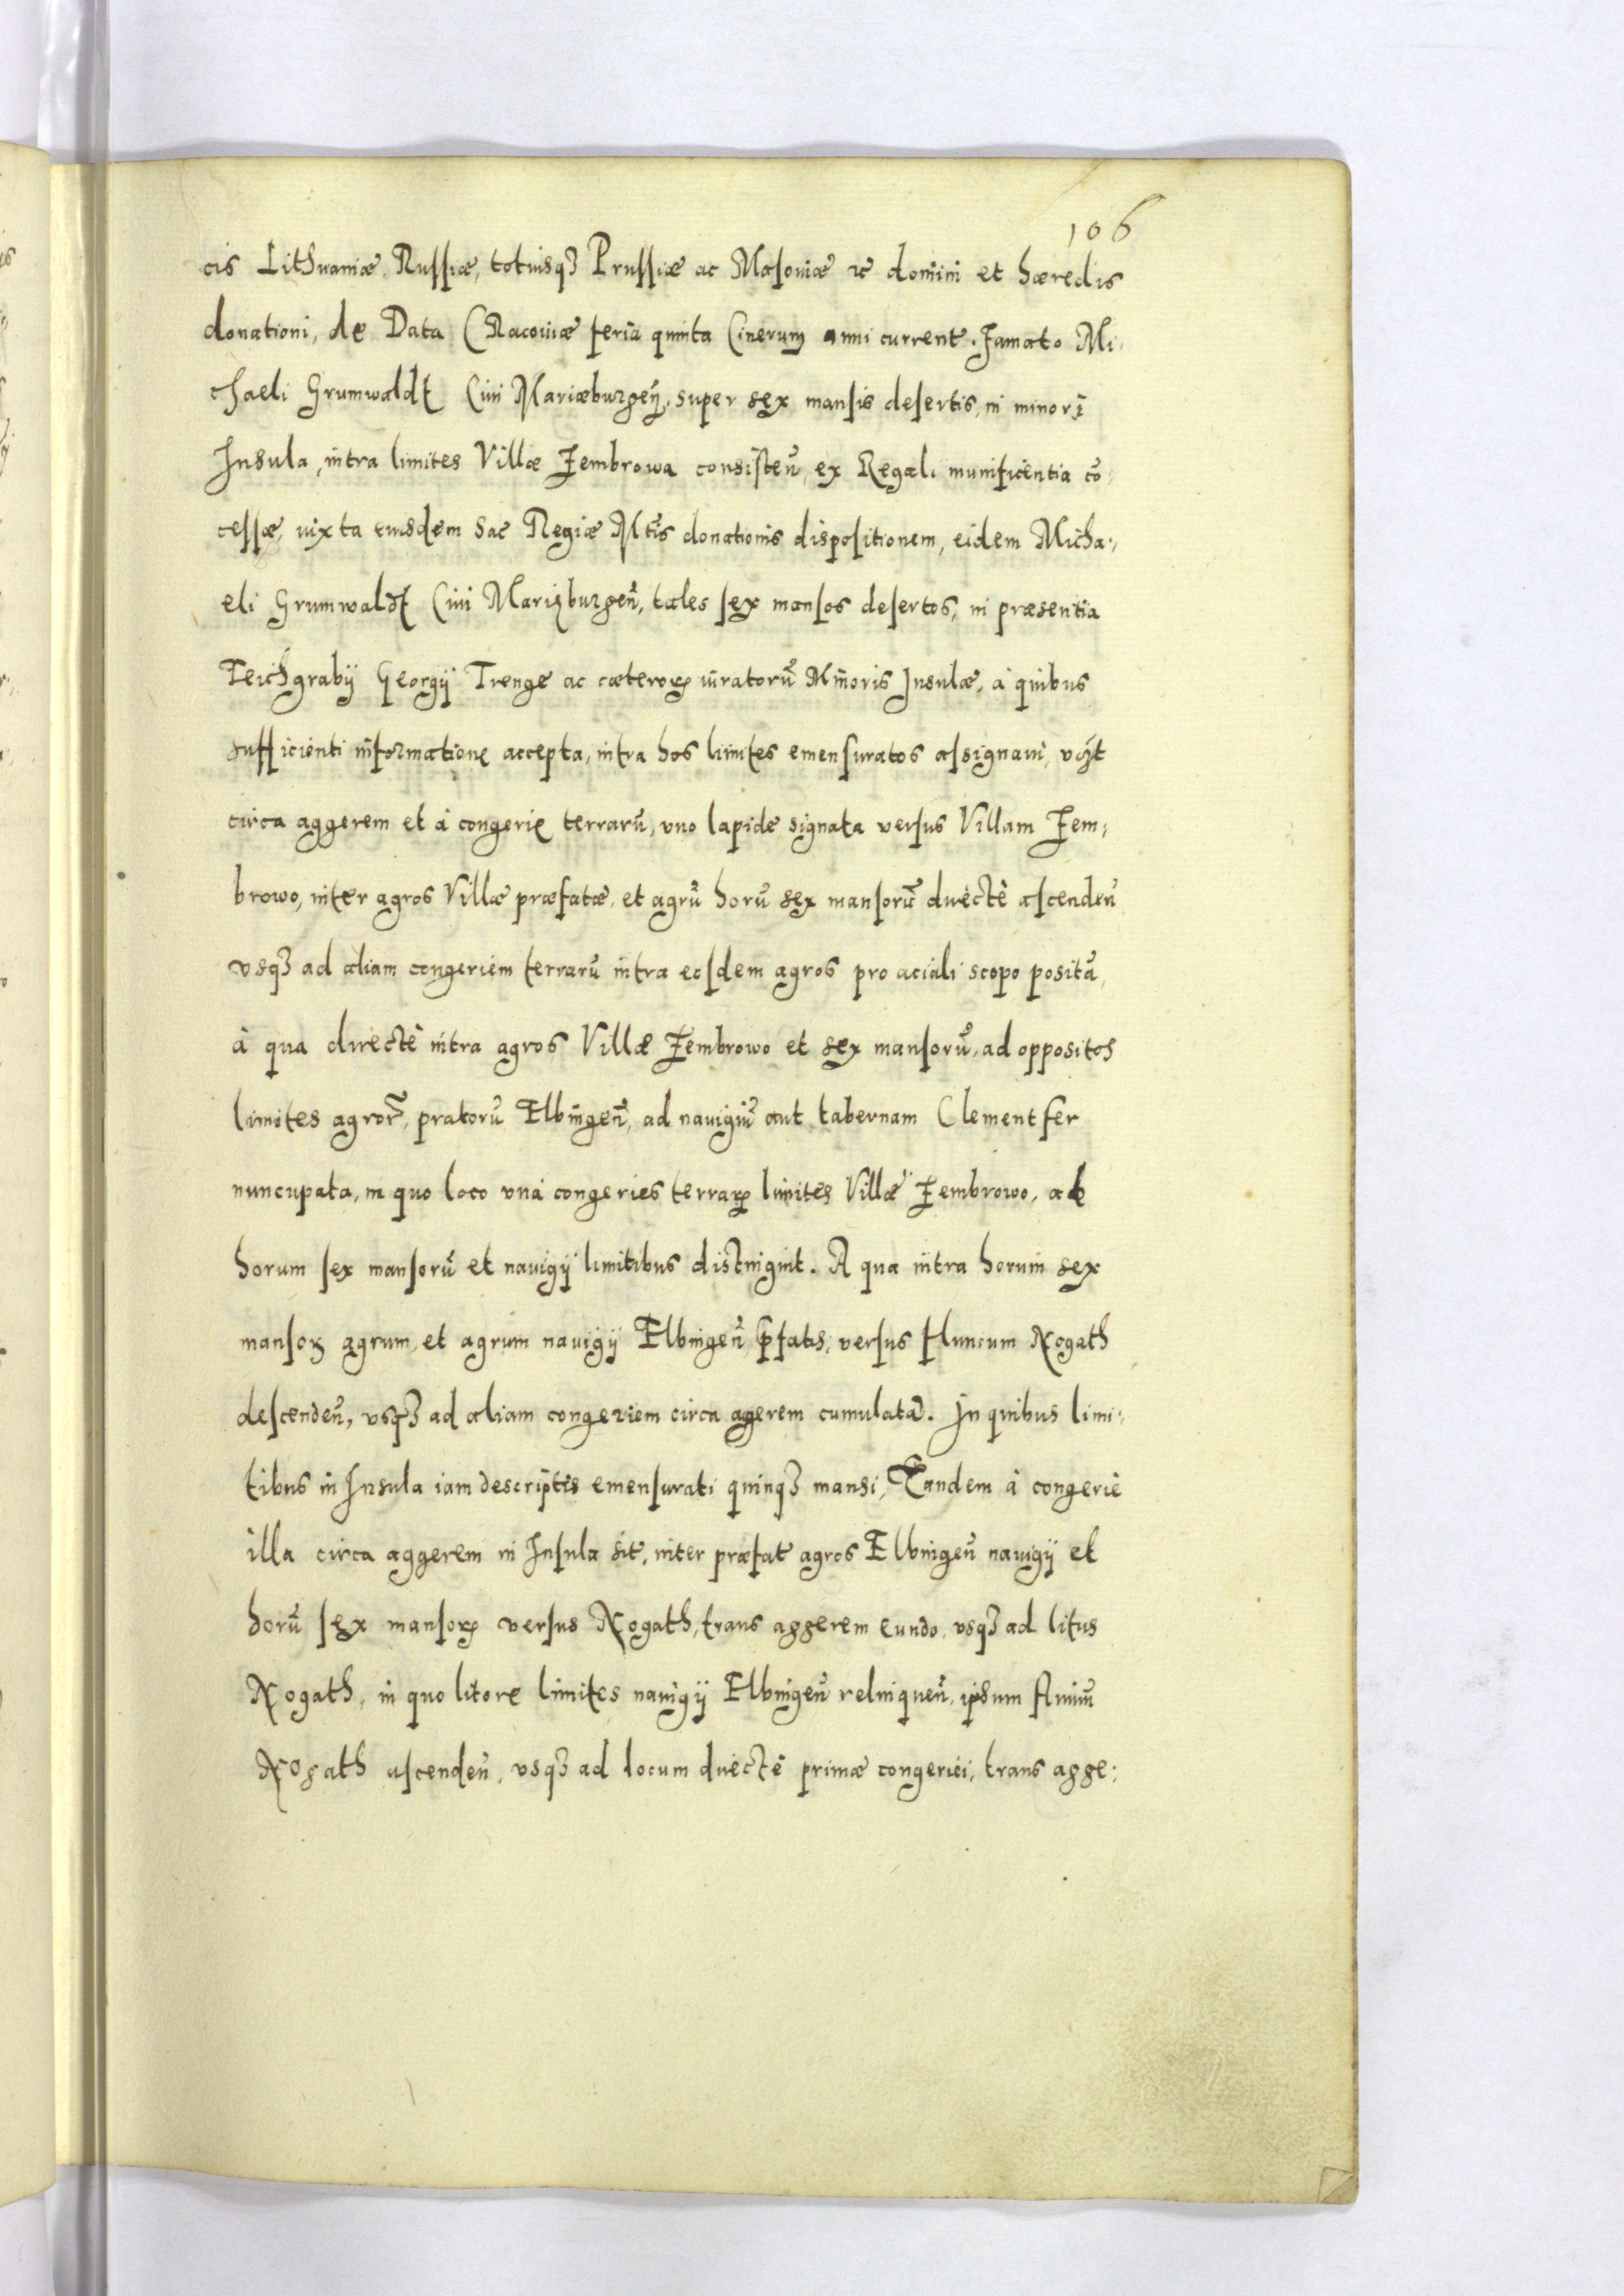 106
cis Lithuaniæ, Russiæ, totiusq3 Prussiæ ac Masoviæ ꝛc domini et hæredis
donationi, de Data Cracoviæ feria quinta Cinerum anni current. Famato Mi,
chaeli Grumwaldt Civi Mariæburgeñ, super sex mansis desertis, in minori
Insula, intra limites Villæ Zembrowa consisteñ, ex Regali munificentia cō,
cessæ, iuxta eiusdem Sac Regiæ Mtis donationis dispositionem, eidem Micha,,
eli Grumwaldt Civi Mariæburgeñ, tales sex mansos desertos, in præsentia
Teichgrabij Georgij Trenge ac cæteroꝝ iuratorū Minoris Insulæ, à quibus
sufficienti informatione accepta, intra hos limites emensuratos assignavi,
circa aggerem et à congerie terrarū, uno lapide signata versus Villam Zem,
browo, inter agros Villæ præfatæ, et agrū horū sex mansorū directè ascendeñ
vsq3 ad aliam congeriem terrarū intra eosdem agros pro aciali scopo positā,
à qua directè intra agros Villæ Zembrowo et sex mansorū, ad oppositos
limites agror̄, pratorū Elbingeñ, ad navigiū aut tabernam Clementfer
nuncupata, in quo loco una congeries terraꝝ limites Villæ Zembrowo, ab
horum sex mansorū et navigij limitibus distinguit. A qua intra horum sex
mansoꝝ agrum, et agrum navigij Elbingeñ p̄fatis, versus fluvium Nogath
descendeñ, vsq3 ad aliam congeriem circa agerem cumulatā. In quibus limi,
tibus in Insula iam descriptis emensurati quinq3 mansi, Tandem à congerie
illa circa aggerem in Insula sit, inter præfat agros Elbingeñ navigij et
horū sex mansoꝝ versus Nogath, trans aggerem eundo, vsq3 ad litus
Nogath, in quo litore limites navigij Elbingeñ relinqueñ, ipsum fluviū
Nogath ascendeñ, vsq3 ad locum directè primæ congeriei, trans agge,